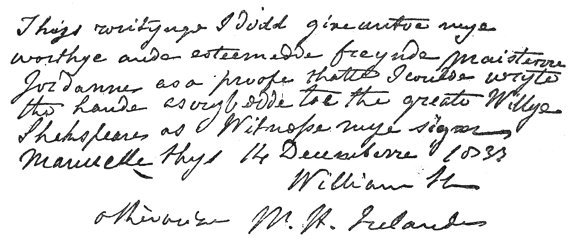 Thys wrytynge I didd give untoe mye
worthye ande esteemedde freynde Maisterre
Jordanne as a proofe thatte I coulde wryte
the hande ascrybedde toe the greate Willye
Shekspeare as Witnesse mye signe
Manuelle thys 14 Decemberre 1833
William H
otherwise W. H. Irelande